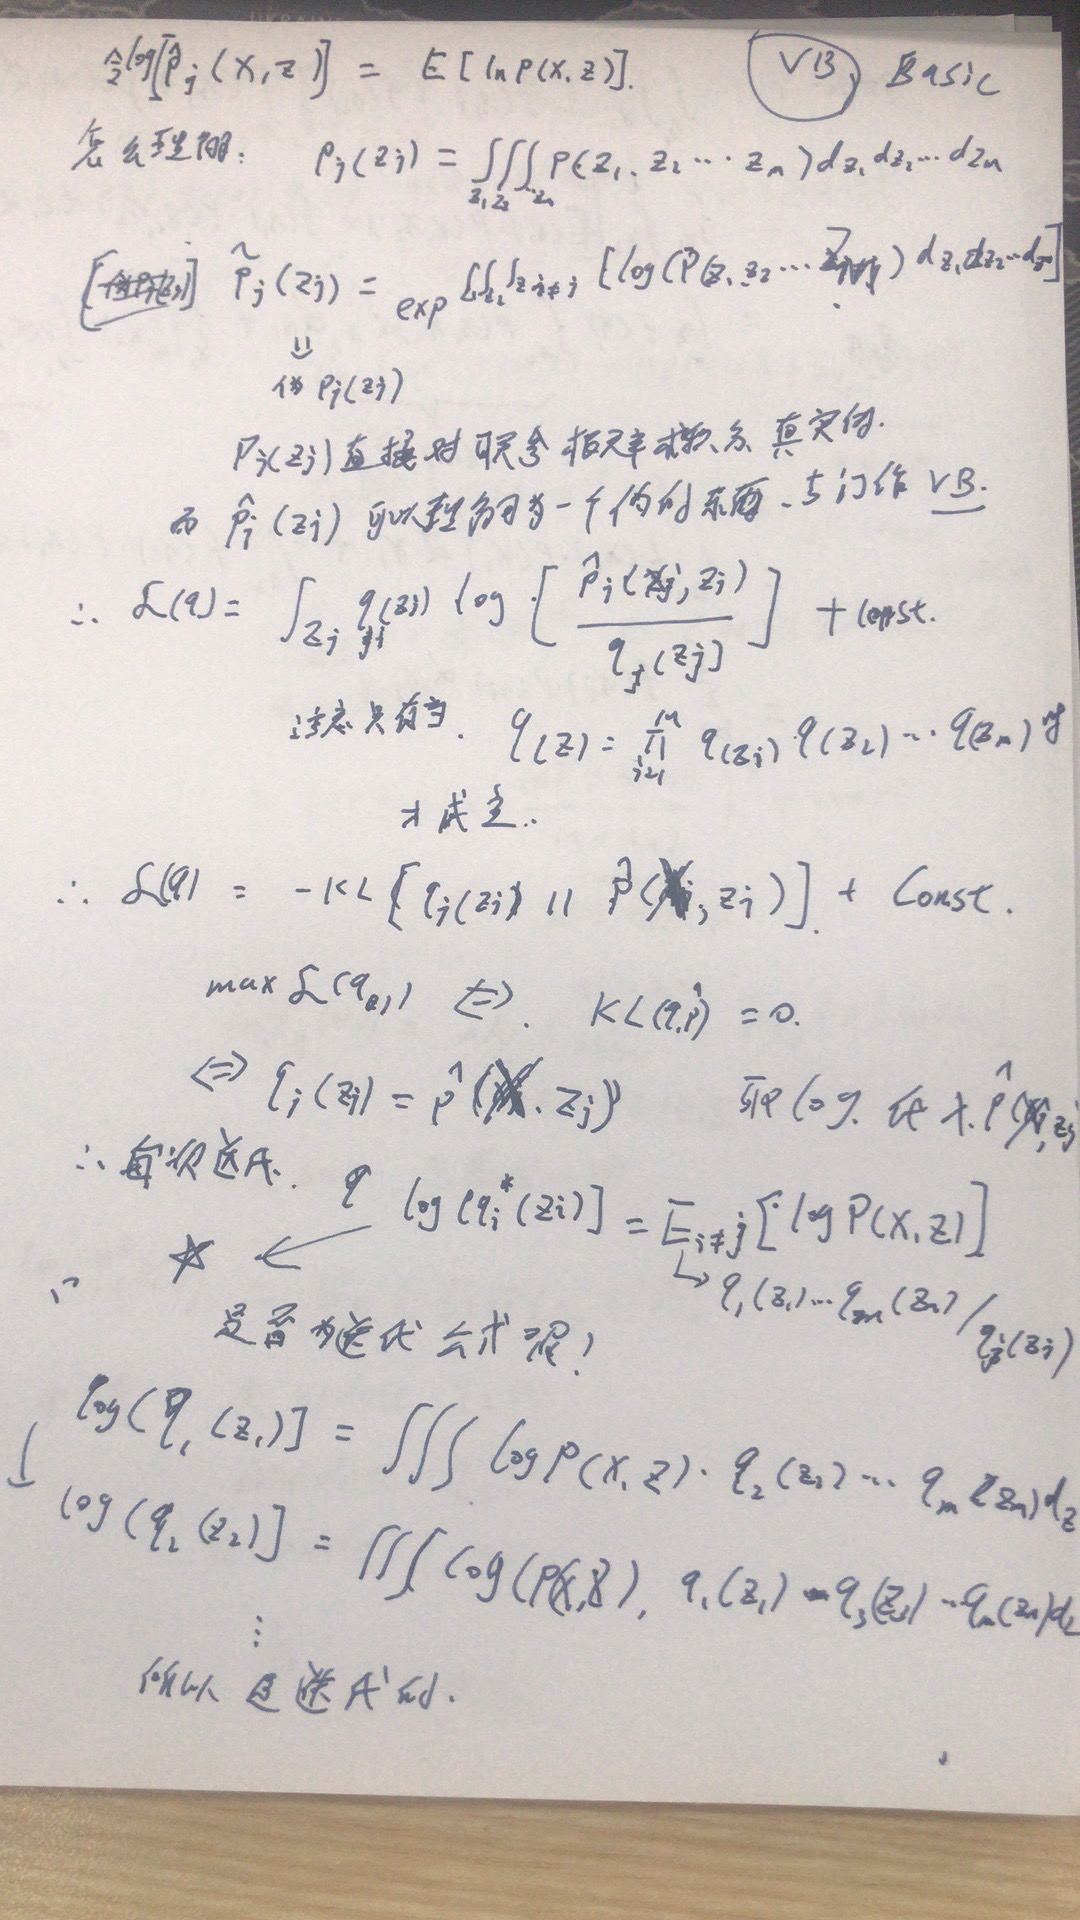 令 log[p̂_j(X,Z)] = E[ln P(X,Z)]. VB, Basic
怎么理解: p_j(z_j) = ∫∫∫_{z_1 z_2 … z_n} P(z_1, z_2 ⋯ z_n) dz_1 dz_2 ⋯ dz_n
p̃_j(z_j) = exp ∫∫_{z_2}∫_{z_{i≠j}} [log(P(z_1 z_2 ⋯ ) dz_1 dz_2 ⋯ dz_n]
⇓
伪 p_j(z_j)
P_j(z_j) 直接对联合概率求积分, 真实的.
而 p̂_j(z_j) 可以理解为一个伪的东西. 专门作 VB.
∴ L(q) = ∫_{z_j} q(z_j) log [ p̂_j(X, z_j) / q_j(z_j) ] + const.
注意只有当. q(z) = ∏_{i=1}^{m} q(z_i) q(z_2) ⋯ q(z_m) 时
才成立..
∴ L(q) = -KL[q_j(z_j) || p̂( , z_j)] + Const.
max L(q) ⇔. KL(q,p̂) = 0.
⇔ q_j(z_j) = p̂( . z_j) 取 log. 代入. p̂( , z_j)
∴ 每次迭代. q log[q_i*(z_i)] = E_{i≠j}[log P(X, Z)]
☆ ← ↳ q_1(z_1) ⋯ q_m(z_m) / q_j(z_j)
是否为迭代公式呢!
log(q_1(z_1)] = ∫∫∫ log P(X, Z) · q_2(z_2) ⋯ q_m(z_m) dz
↓ log(q_2(z_2)] = ∫∫∫ log(P(X,Z), q_1(z_1) q_3(z_3) ⋯ q_m(z_m) dz
⋮
所以是迭代的.